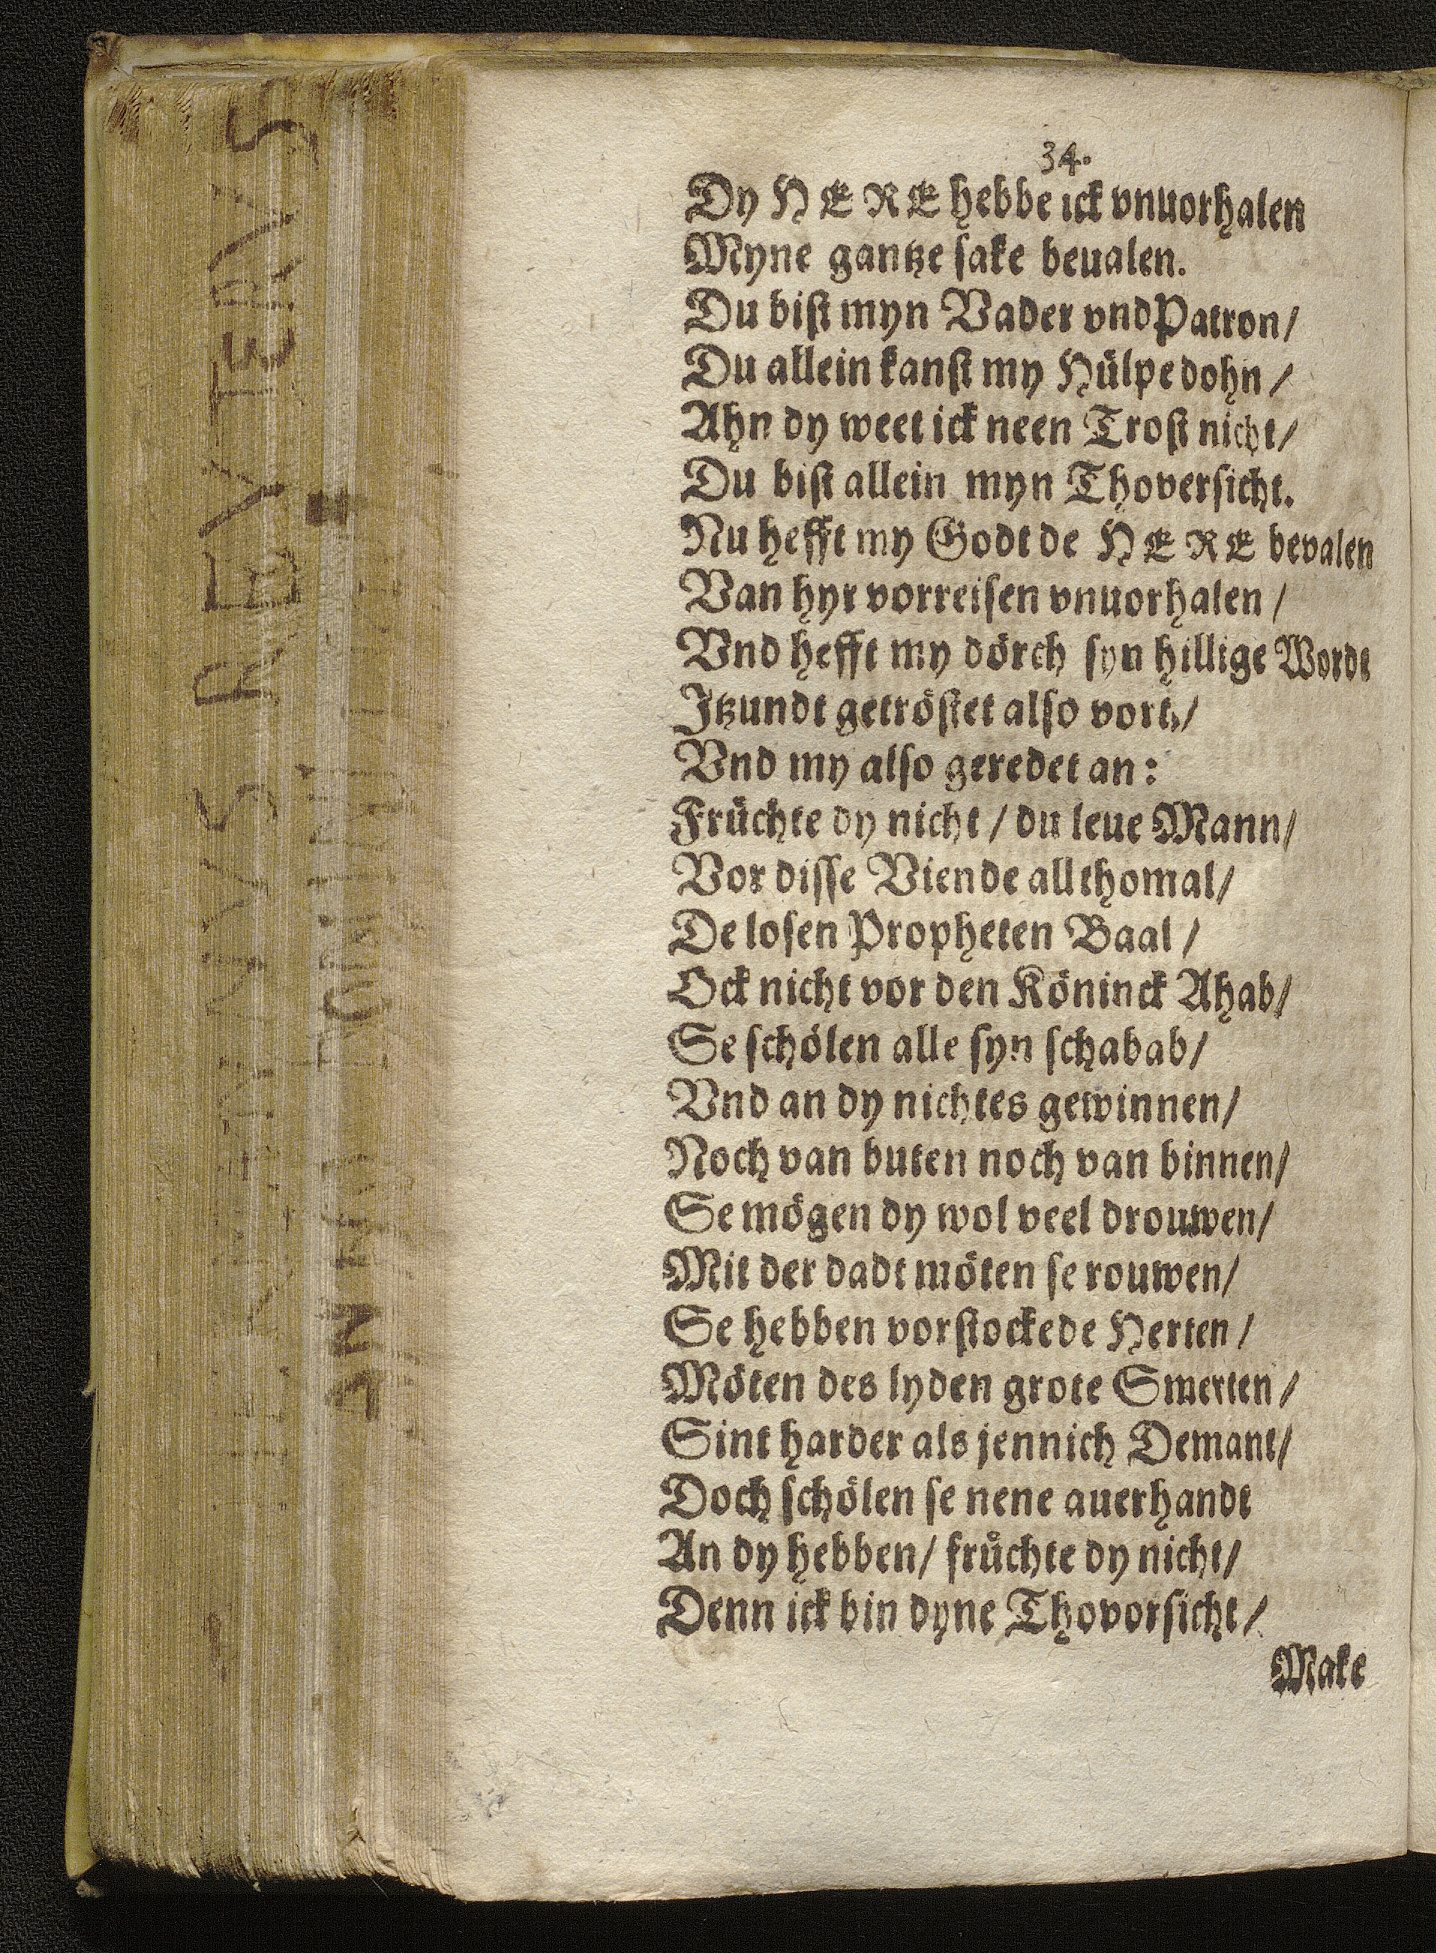 34.
Dy HERE hebbe ick vnuorhalen
Myne gantze sake beualen.
Du bist myn Vader vnd Patron/
Du allein kanst my Hülpe dohn/
Ahn dy weet ick neen Trost nicht/
Du bist allein myn Thoversicht.
Nu hefft my Godt de HERE bevalen
Van hyr vorreisen vnuorhalen/
Vnd hefft my dörch syn hillige Wordt
Itzundt getröstet also vort/
Vnd my also geredet an:
Früchte dy nicht / du leue Mann/
Vor disse Viende allthomal/
De losen Propheten Baal/
Ock nicht vor den Köninck Ahab/
Se schölen alle syn schabab/
Vnd an dy nichtes gewinnen/
Noch van buten noch van binnen/
Se mögen dy wol veel drouwen/
Mit der dadt möten se rouwen/
Se hebben vorstockede Herten/
Möten des lyden grote Smerten/
Sint harder als jennich Demant/
Doch schölen se nene auerhandt
An dy hebben/ früchte dy nicht/
Denn ick bin dyne Thovorsicht/
Make
REVTERVS